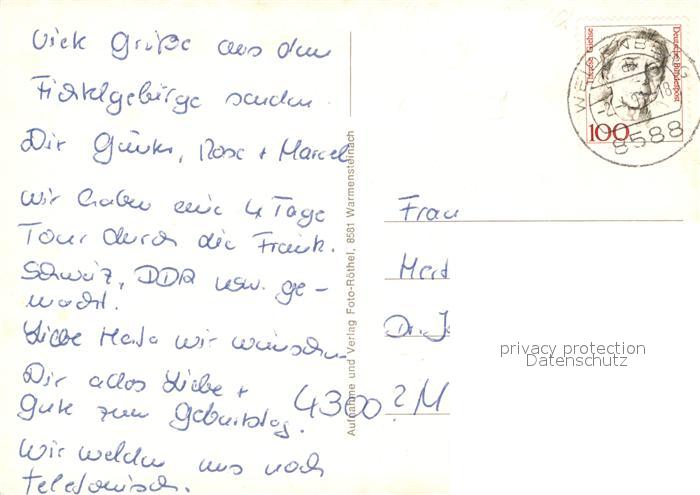 Viele Grüße aus dem
Fichtelgebirge senden
Dir Günter, Rosa + Marcel
wir haben eine 4 Tage
Tour durch die Fränk.
Schweiz, DDR usw. ge-
macht.
Liebe wir wünschen
Dir alles Liebe +
Gute zum Geburtstag.
Wir melden uns noch
telefonisch.
Aufnahme und Verlag Foto-Röthel, 8581 Warmensteinach
Therese Giehse
Deutsche Bundespost
100
8588
Frau
Dr.
4300 ? M
privacy protection
Datenschutz